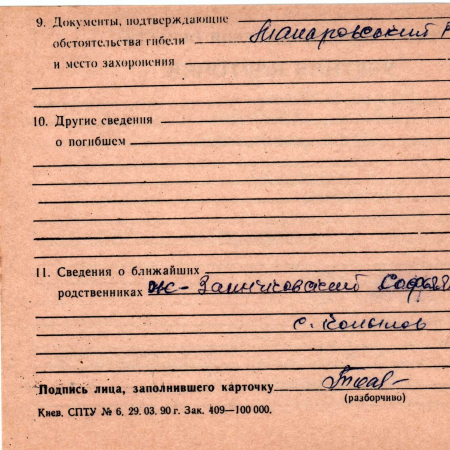 9. Документы, подтверждающие
обстоятельства гибели Макаровский
и место захоронения
10. Другие сведения
о погибшем
11. Сведения о ближайших
родственниках ж-
с.
Подпись лица, заполнившего карточку
(разборчиво)
Киев. СПТУ № 6. 29. 03. 90 г. Зак. 409—100 000.